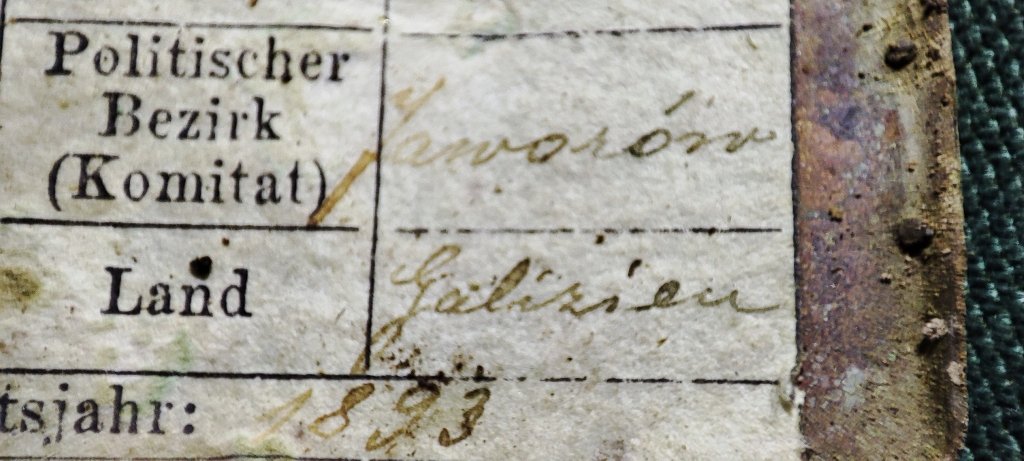 Politischer
Bezirk
(Komitat)
Jaworów
Land
Galizien
tsjahr: 1893